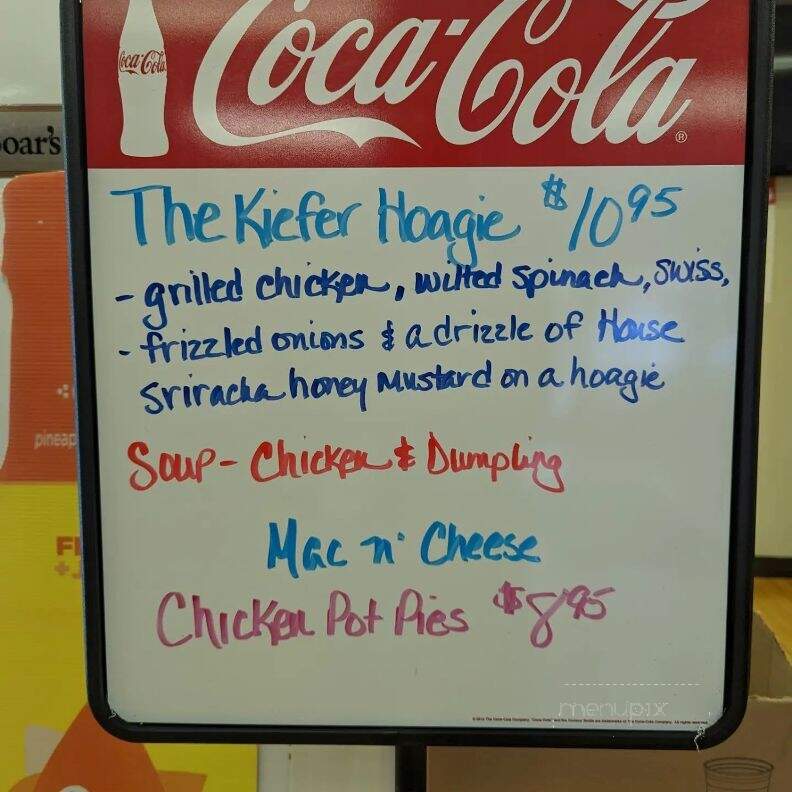 Coca-Cola
Coca-Cola®
oar's
The Kiefer Hoagie $10 95
- grilled chicken, wilted spinach, swiss,
- frizzled onions & a drizzle of House
sriracha honey mustard on a hoagie
pineap
Soup - Chicken & Dumpling
Mac n' Cheese
Chicken Pot Pies $8 95
menupix